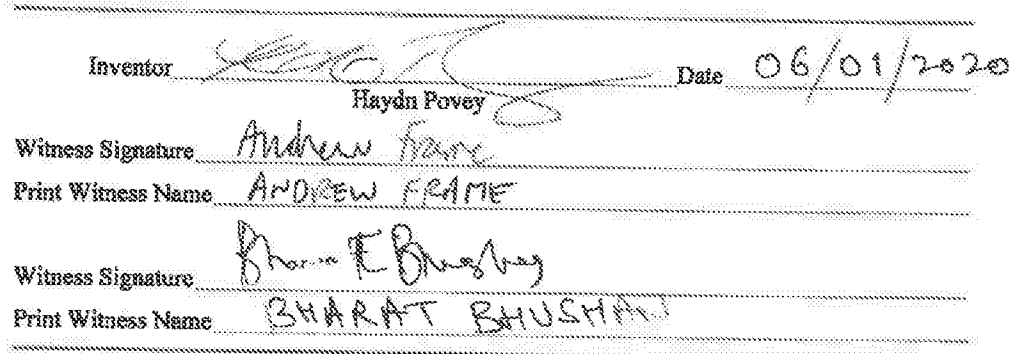 Inventor Date 06/01/2020
Haydn Povey
Witness Signature Andrew Frame
Print Witness Name ANDREW FRAME
Witness Signature
Print Witness Name BHARAT BHUSHAN